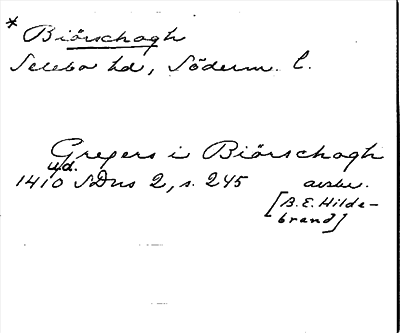 * Biörschogh
Selebo hd, Söderm. l.
Gregers i Biörschogh
u.d.
1410 SDns 2, s. 245 avskr.
[B.E. Hilde-
brand]